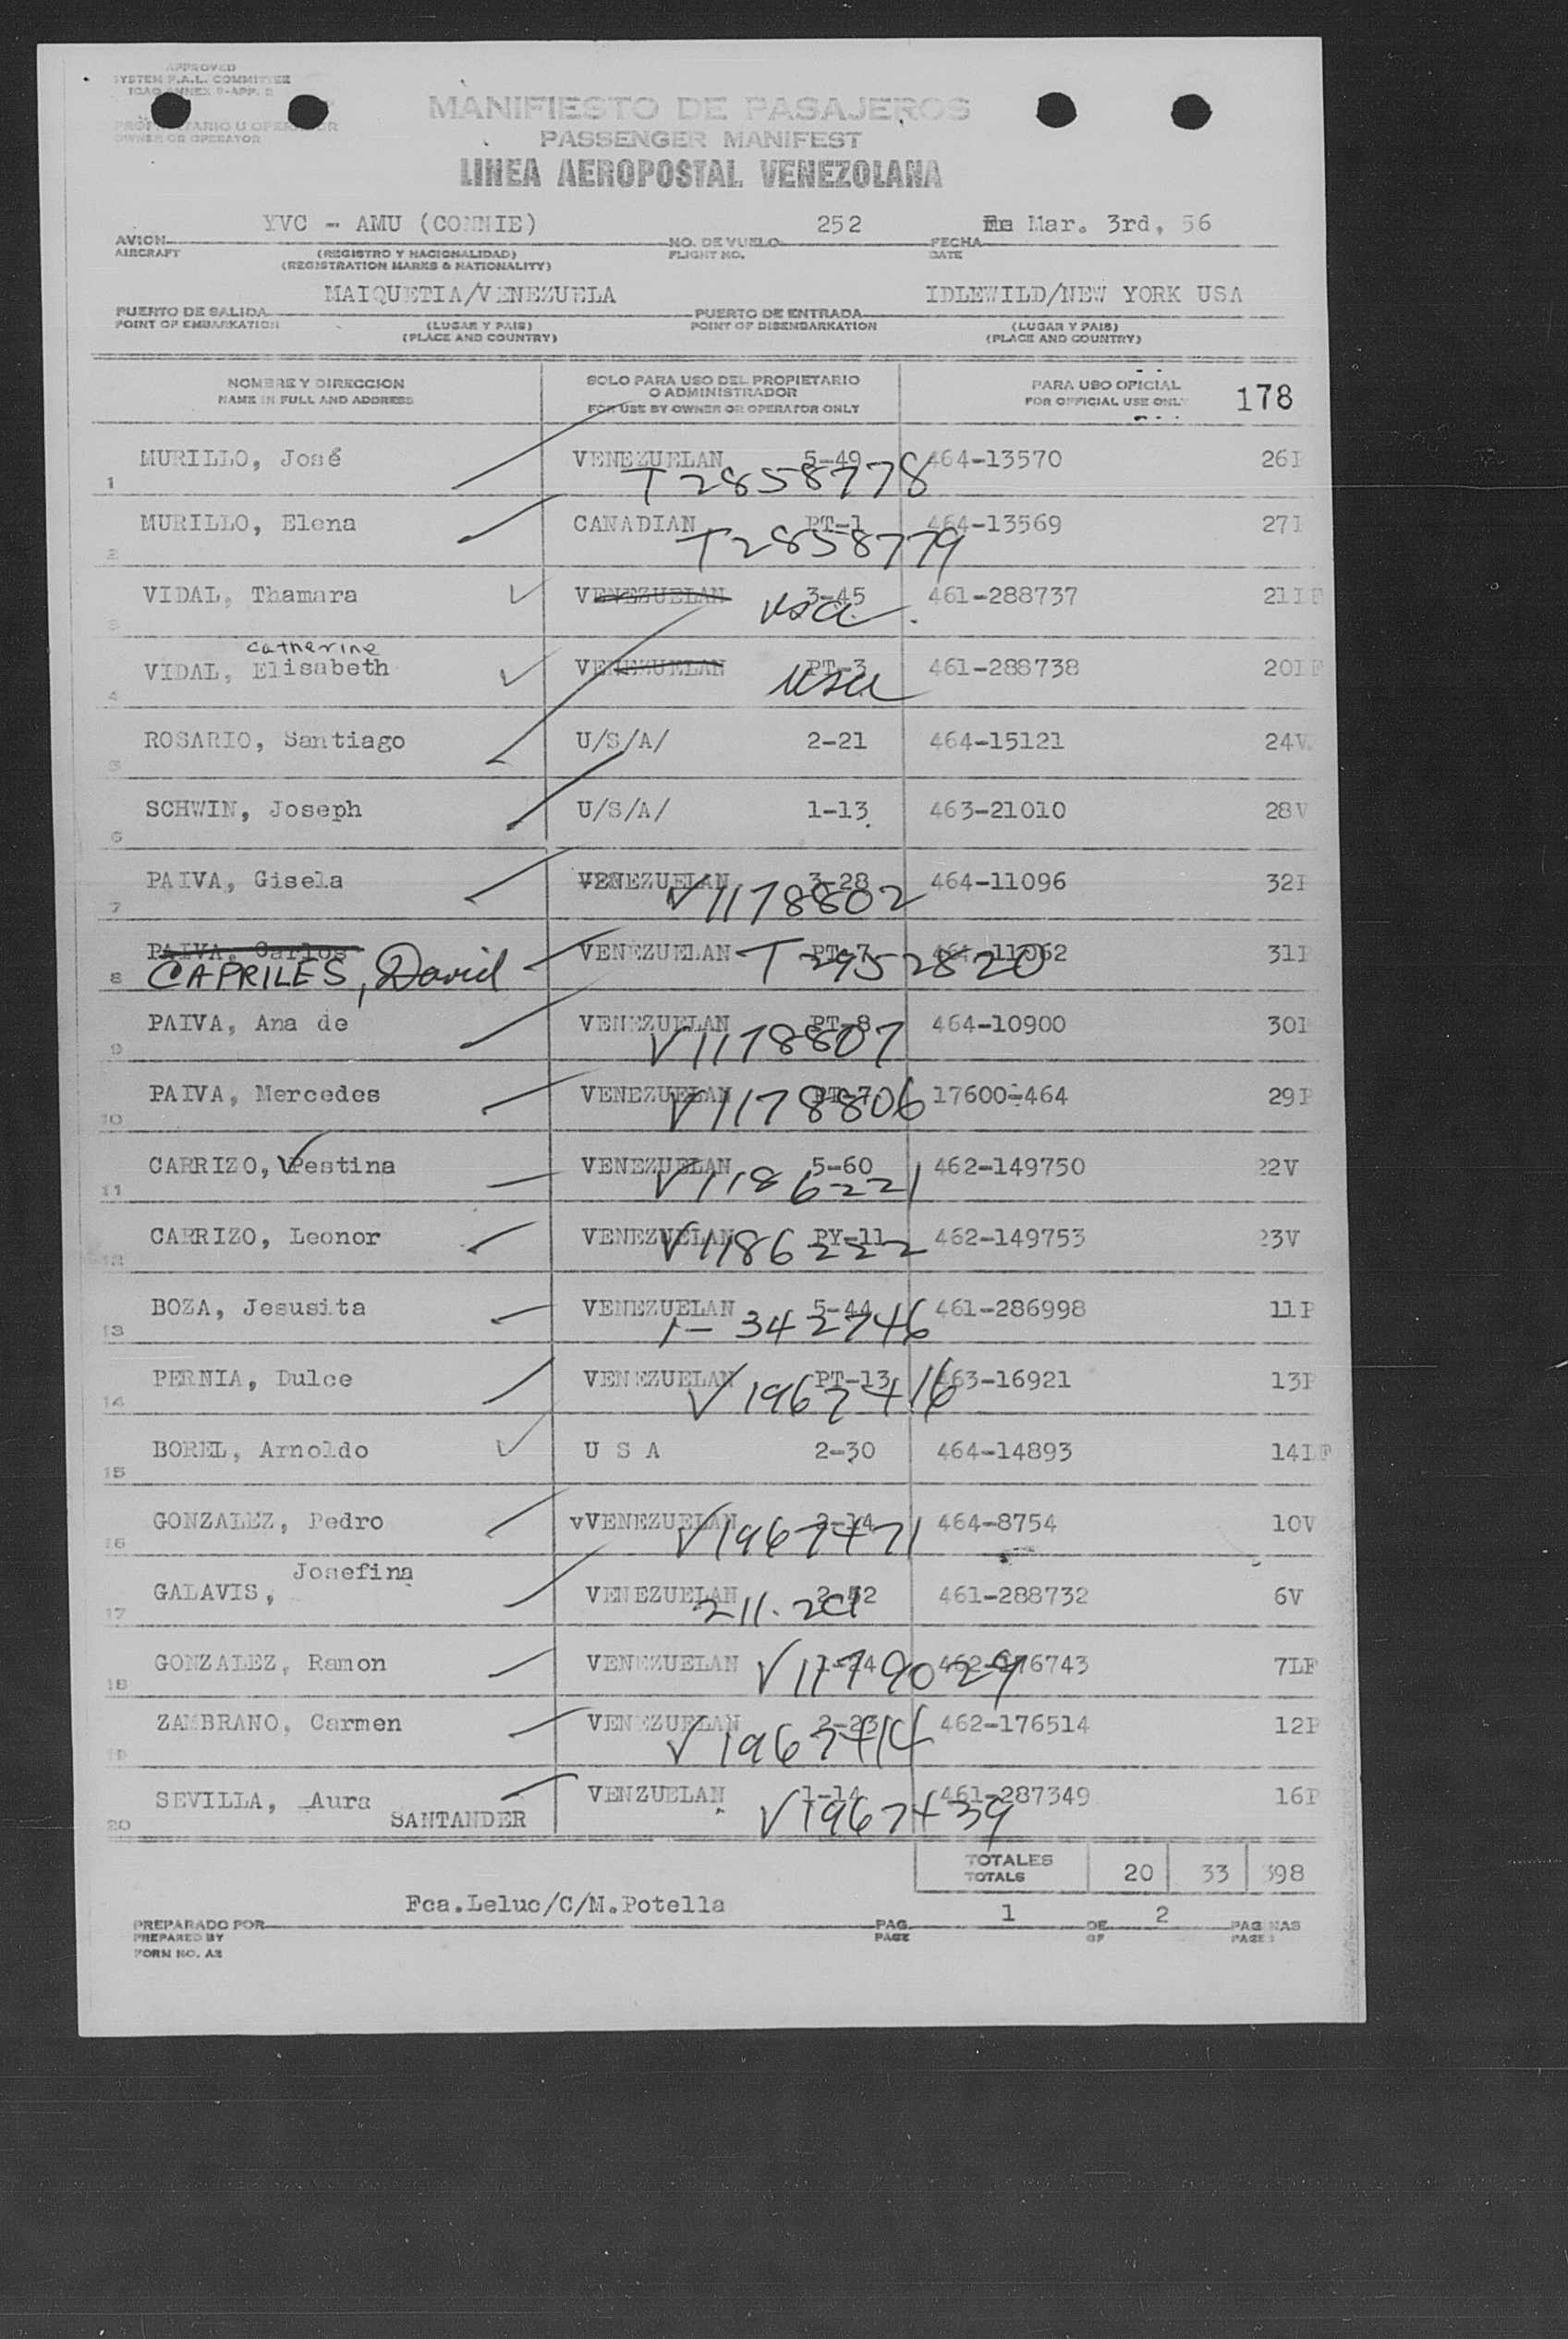 APPROVED
SYSTEM F.A.L. COMMITTEE
ICAO ANNEX 9-APP. 2
PROPIETARIO U OPERADOR
OWNER OR OPERATOR
MANIFIESTO DE PASAJEROS
PASSENGER MANIFEST
LINEA AEROPOSTAL VENEZOLANA
YVC - AMU (CONNIE) 252 Mar. 3rd, 56
AVION NO. DE VUELO FECHA
AIRCRAFT (REGISTRO Y NACIONALIDAD) FLIGHT NO. DATE
(REGISTRATION MARKS & NATIONALITY)
MAIQUETIA/VENEZUELA IDLEWILD/NEW YORK USA
PUERTO DE SALIDA PUERTO DE ENTRADA
POINT OF EMBARKATION (LUGAR Y PAIS) POINT OF DISEMBARKATION (LUGAR Y PAIS)
(PLACE AND COUNTRY) (PLACE AND COUNTRY)
NOMBRE Y DIRECCION SOLO PARA USO DEL PROPIETARIO PARA USO OFICIAL
NAME IN FULL AND ADDRESS O ADMINISTRADOR FOR OFFICIAL USE ONLY 178
FOR USE BY OWNER OR OPERATOR ONLY
MURILLO, José VENEZUELAN 5-49 464-13570 26P
1 T2858778
MURILLO, Elena CANADIAN PT-1 464-13569 27P
2 T2858779
VIDAL, Thamara VENEZUELAN 3-45 461-288737 21LF
3 usa.
catherine
VIDAL, Elisabeth VENEZUELAN PT-3 461-288738 20LF
4 usa
ROSARIO, Santiago U/S/A/ 2-21 464-15121 24V
5
SCHWIN, Joseph U/S/A/ 1-13 463-21010 28V
6
PAIVA, Gisela VENEZUELAN 3-28 464-11096 32P
7 V1178802
PAIVA, Carlos VENEZUELAN PT-7 464-11062 31P
8 CAPRILES, David T2952820
PAIVA, Ana de VENEZUELAN PT-8 464-10900 30P
9 V1178807
PAIVA, Mercedes VENEZUELAN PT-7 17600-464 29P
10 V1178806
CARRIZO, Vestina VENEZUELAN 5-60 462-149750 22V
11 V1186221
CARRIZO, Leonor VENEZUELAN PY-11 462-149753 23V
12 V1186222
BOZA, Jesusita VENEZUELAN 5-44 461-286998 11P
13 1-342746
PERNIA, Dulce VENEZUELAN PT-13 463-16921 13P
14 V1967416
BOREL, Arnoldo U S A 2-30 464-14893 14LF
15
GONZALEZ, Pedro vVENEZUELAN 2-14 464-8754 10V
16 V1967471
Josefina
GALAVIS, VENEZUELAN 461-288732 6V
17 211.20
GONZALEZ, Ramon VENEZUELAN 1-24 462-176743 7LF
18 V1179029
ZAMBRANO, Carmen VENEZUELAN 2-23 462-176514 12P
19 V1967414
SEVILLA, Aura VENZUELAN 1-14 461-287349 16P
20 SANTANDER V1967439
TOTALES
TOTALS 20 33 398
Fca.Leluc/C/M.Potella 1 2
PREPARADO POR PAG. DE PAGINAS
PREPARED BY PAGE OF PAGES
FORM NO. A2